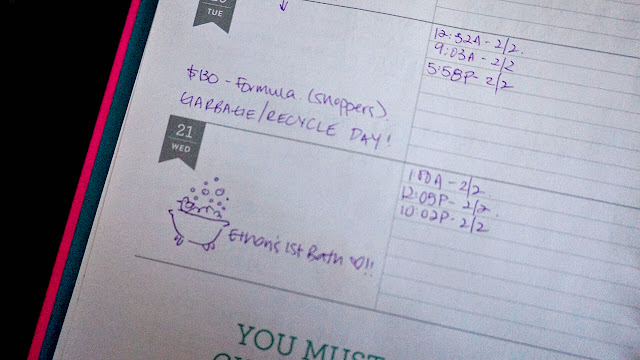 TUE
12:32A - 2/2
9:03A - 2/2
5:58P - 2/2
$130 - Formula (Shoppers)
GARBAGE/RECYCLE DAY!
21
WED
1:00A - 2/2
12:05P - 2/2
10:02P - 2/2
Ethan's 1st Bath !!
YOU MUST